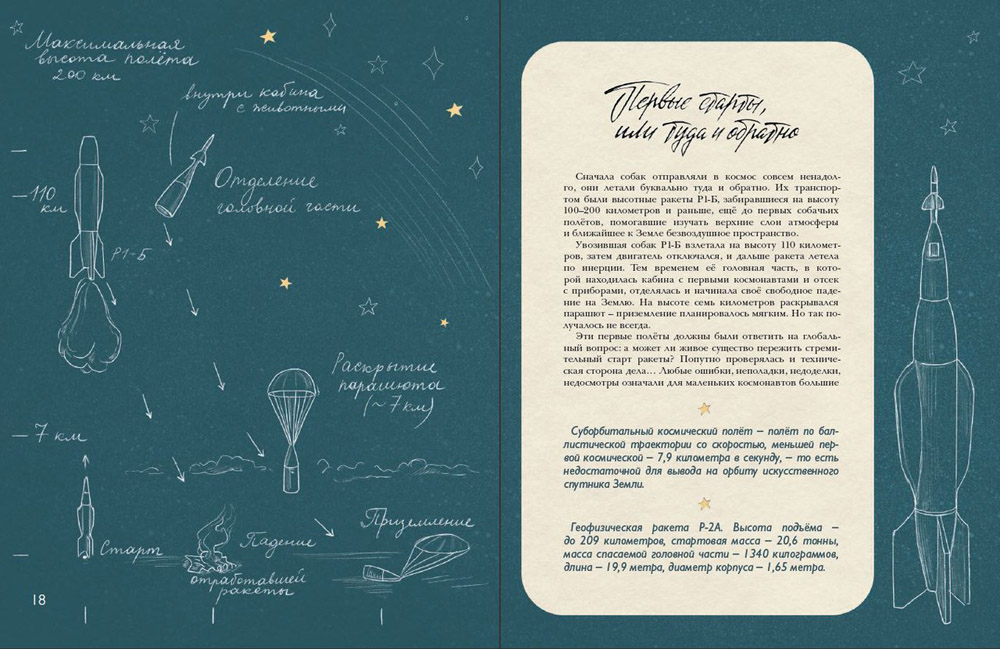 Максимальная
высота полёта
200 км
внутри кабина
с животными
110
км
Отделение
головной части
Р1-Б
Раскрытие
парашюта
(~7 км)
7 км
Старт
Падение
отработавшей
ракеты
Приземление
18
Первые старты,
или туда и обратно
Сначала собак отправляли в космос совсем ненадол-
го, они летали буквально туда и обратно. Их транспор-
том были высотные ракеты Р1-Б, забиравшиеся на высоту
100–200 километров и раньше, ещё до первых собачьих
полётов, помогавшие изучать верхние слои атмосферы
и ближайшее к Земле безвоздушное пространство.
Увозившая собак Р1-Б взлетала на высоту 110 километ-
ров, затем двигатель отключался, и дальше ракета летела
по инерции. Тем временем её головная часть, в кото-
рой находилась кабина с первыми космонавтами и отсек
с приборами, отделялась и начинала своё свободное паде-
ние на Землю. На высоте семь километров раскрывался
парашют – приземление планировалось мягким. Но так по-
лучалось не всегда.
Эти первые полёты должны были ответить на глобаль-
ный вопрос: а может ли живое существо пережить стреми-
тельный старт ракеты? Попутно проверялась и техниче-
ская сторона дела… Любые ошибки, неполадки, недоделки,
недосмотры означали для маленьких космонавтов большие
Суборбитальный космический полёт – полёт по бал-
листической траектории со скоростью, меньшей пер-
вой космической – 7,9 километра в секунду, – то есть
недостаточной для вывода на орбиту искусственного
спутника Земли.
Геофизическая ракета Р-2А. Высота подъёма –
до 209 километров, стартовая масса – 20,6 тонны,
масса спасаемой головной части – 1340 килограммов,
длина – 19,9 метра, диаметр корпуса – 1,65 метра.